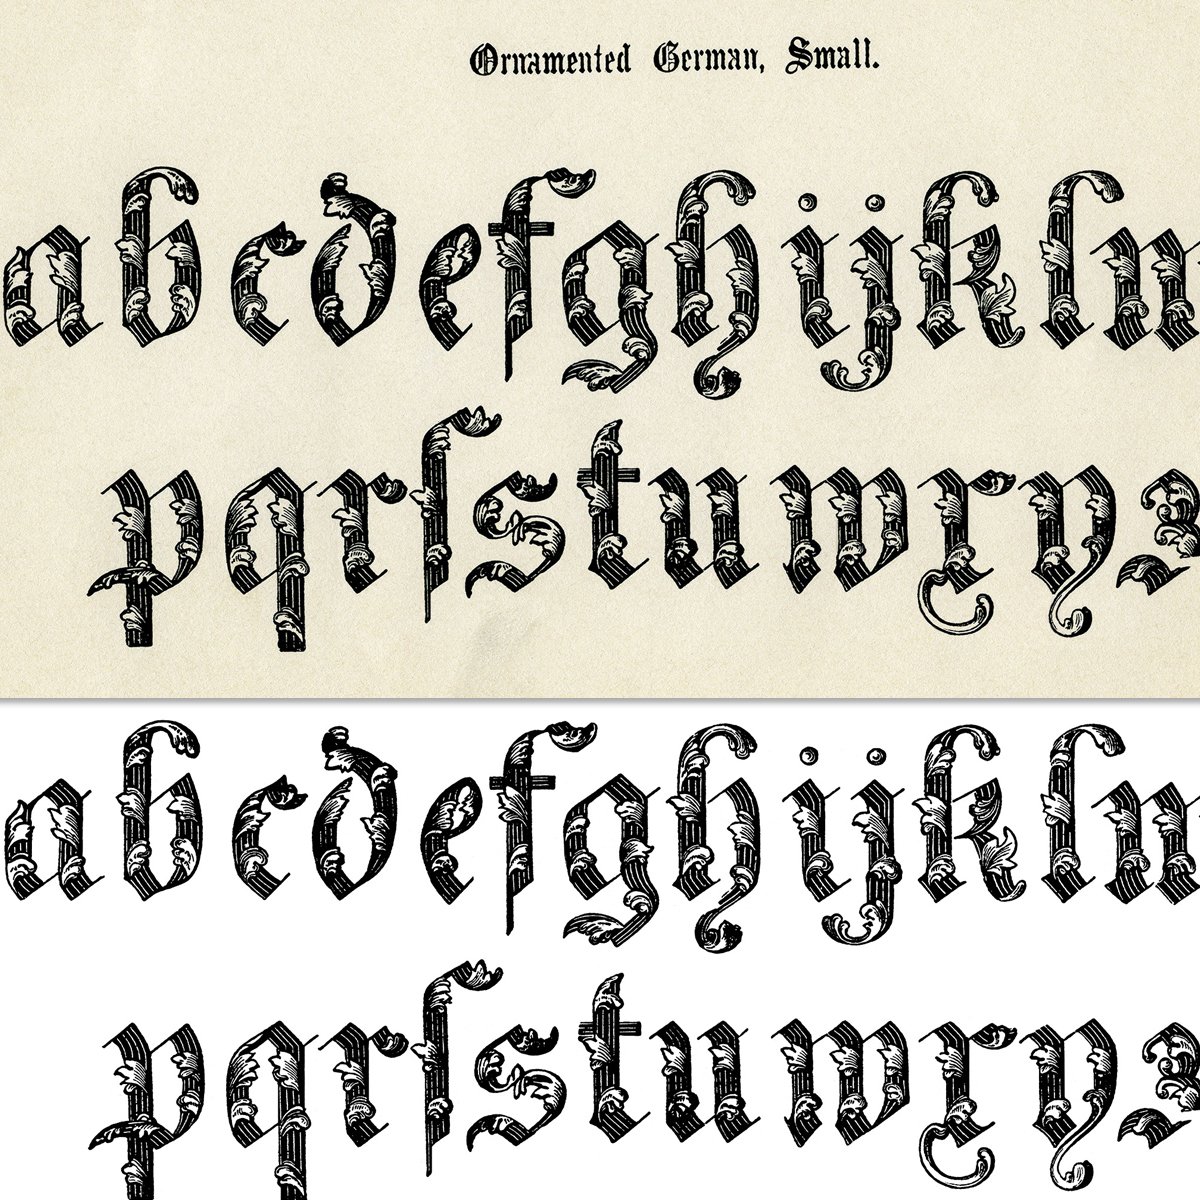 Ornamented German, Small.
abcdefghijklm
pqrſstuwxyz
abcdefghijklm
pqrſstuwxyz